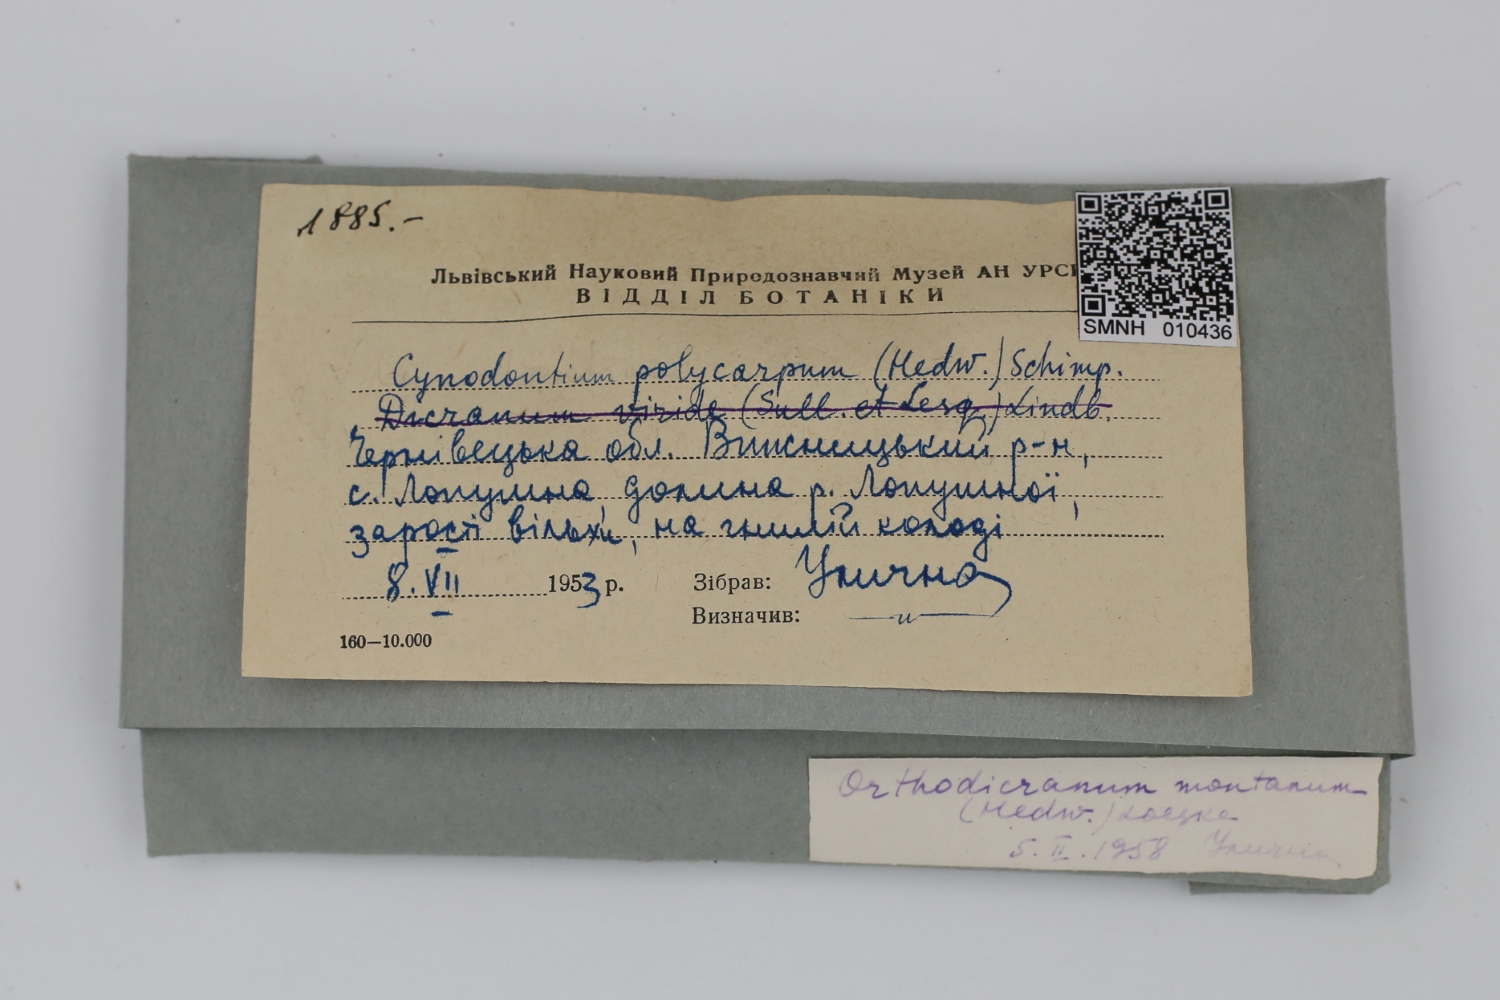 1885.-
Львівський Науковий Природознавчий Музей АН УРСР
ВІДДІЛ БОТАНІКИ
SMNH 010436
Cynodontium polycarpum (Hedw.) Schimp.
Dicranum viride (Sull. et Lesq.) Lindb.
Чернівецька обл. Вижницький р-н,
с. Лопушна, долина р. Лопушної,
зарості вільхи, на гнилій колоді
8. VII 1953 р. Зібрав: Улична
Визначив: —〃—
160—10.000
Orthodicranum montanum
(Hedw.) Loeske
5. II. 1958 Улична